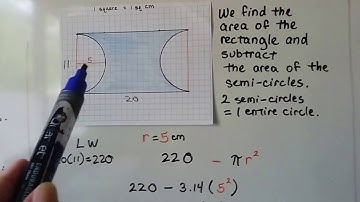 1 square = 1 sq cm
We find the
area of the
rectangle and
subtract
the area of the
semi-circles.
2 semi-circles
= 1 entire circle.
5
11
20
L W
0(11)=220
r=5cm
220 - πr²
220 - 3.14(5²)